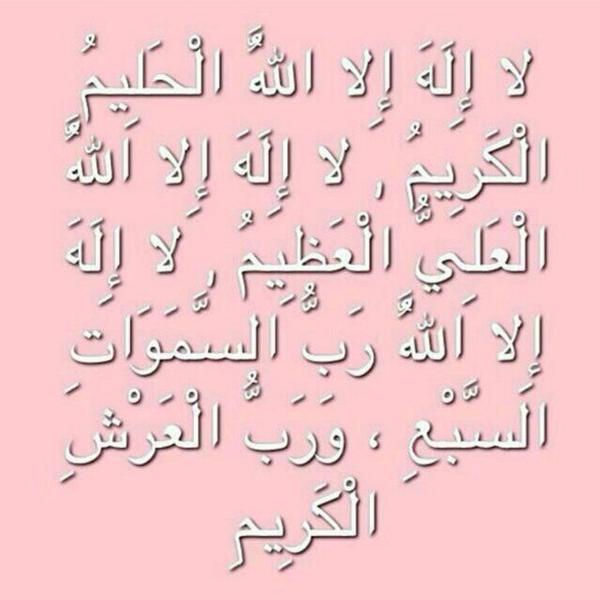 لا إِلَهَ إِلا اللهُ الْحَلِيمُ
الْكَرِيمُ , لا إِلَهَ إِلا اللهُ
الْعَلَيُّ الْعَظِيمُ , لا إِلَهَ
إِلا اللهُ رَبُّ السَّمَوَاتِ
السَّبْعِ ، وَرَبُّ الْعَرْشِ
الْكَرِيمِ